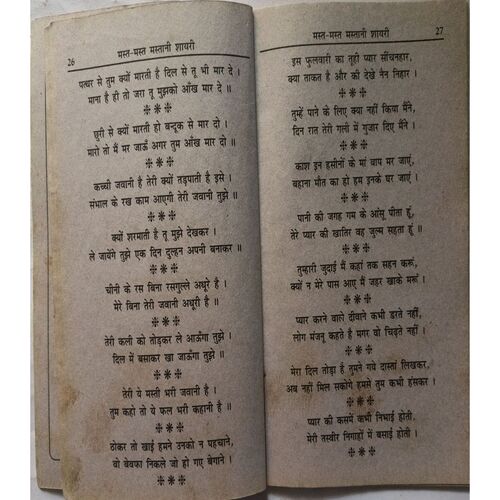 26
मस्त-मस्त मस्तानी शायरी
पत्थर से तुम क्यों मारती है दिल से तू भी मार दे ।
माना है ही तो जरा तू मुझको आँख मार दे ॥
छुरी से क्यों मारती हो बन्दूक से मार दो ।
मारो तो मैं मर जाऊँ अगर तुम आँख मार दो ॥
कच्ची जवानी है तेरी क्यों तड़पाती है इसे ।
संभाल के रख काम आएगी तेरी जवानी तुझे ॥
क्यों शरमाती है तू मुझे देखकर ।
ले जायेंगे तुझे एक दिन दुल्हन अपनी बनाकर ॥
चीनी के रस बिना रसगुल्ले अधूरे है ।
मेरे बिना तेरी जवानी अधूरी है ॥
तेरी कली को तोड़कर ले आऊँगा तुझे ।
दिल में बसाकर खा जाऊँगा तुझे ॥
तेरी ये मस्ती भरी जवानी है ।
तुम कहो तो ये फल भरी कहानी है ॥
ठोकर तो खाई हमने उनको न पहचाने,
वो बेवफा निकले जो हो गए बेगाने ।
मस्त-मस्त मस्तानी शायरी
27
इस फुलवारी का तूही प्यार सींचनहार,
क्या ताकत है और की देखे नैन निहार ।
तुम्हें पाने के लिए क्या नहीं किया मैंने,
दिन रात तेरी गली में गुजार दिए मैंने ।
काश इन हसीनों के मां बाप मर जाएं,
बहाना मौत का हो हम इनके घर जाएं ।
पानी की जगह गम के आंसू पीता हूं,
तेरे प्यार की खातिर वह जुल्म सहता हूं ॥
तुम्हारी जुदाई मैं कहां तक सहन करूं,
क्यों न मेरे पास आए मैं जहर खाके मरूं ।
प्यार करने वाले दीवाने कभी डरते नहीं,
लोग मंजनू कहते है मगर वो चिढ़ते नहीं ।
मेरा दिल तोड़ा है तुमने गये दास्तां लिखकर,
अब नहीं मिल सकोगे हमसे तुम कभी हंसकर ।
प्यार की कसमें कभी निभाई होती,
मेरी तस्वीर निगाहों में बसाई होती ।